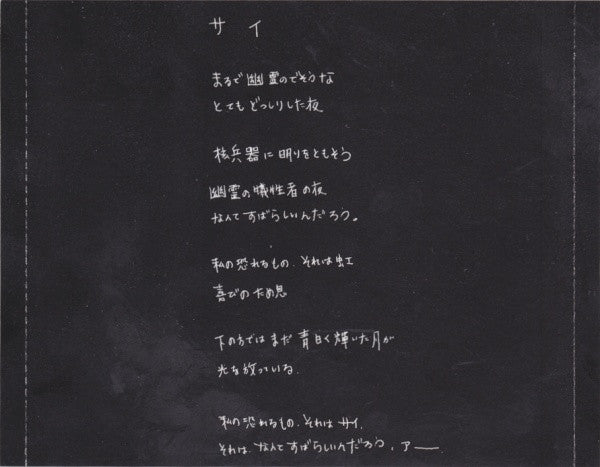 サイ
まるで幽霊のでそうな
とてもどっしりした夜
核兵器に明りをともそう
幽霊の犠牲者の夜
なんてすばらしいんだろう。
私の恐れるもの、それは虹
喜びのため息
下の方ではまだ青白く輝いた月が
光を放っている、
私の恐れるもの、それはサイ、
それは、なんてすばらしいんだろう、アー